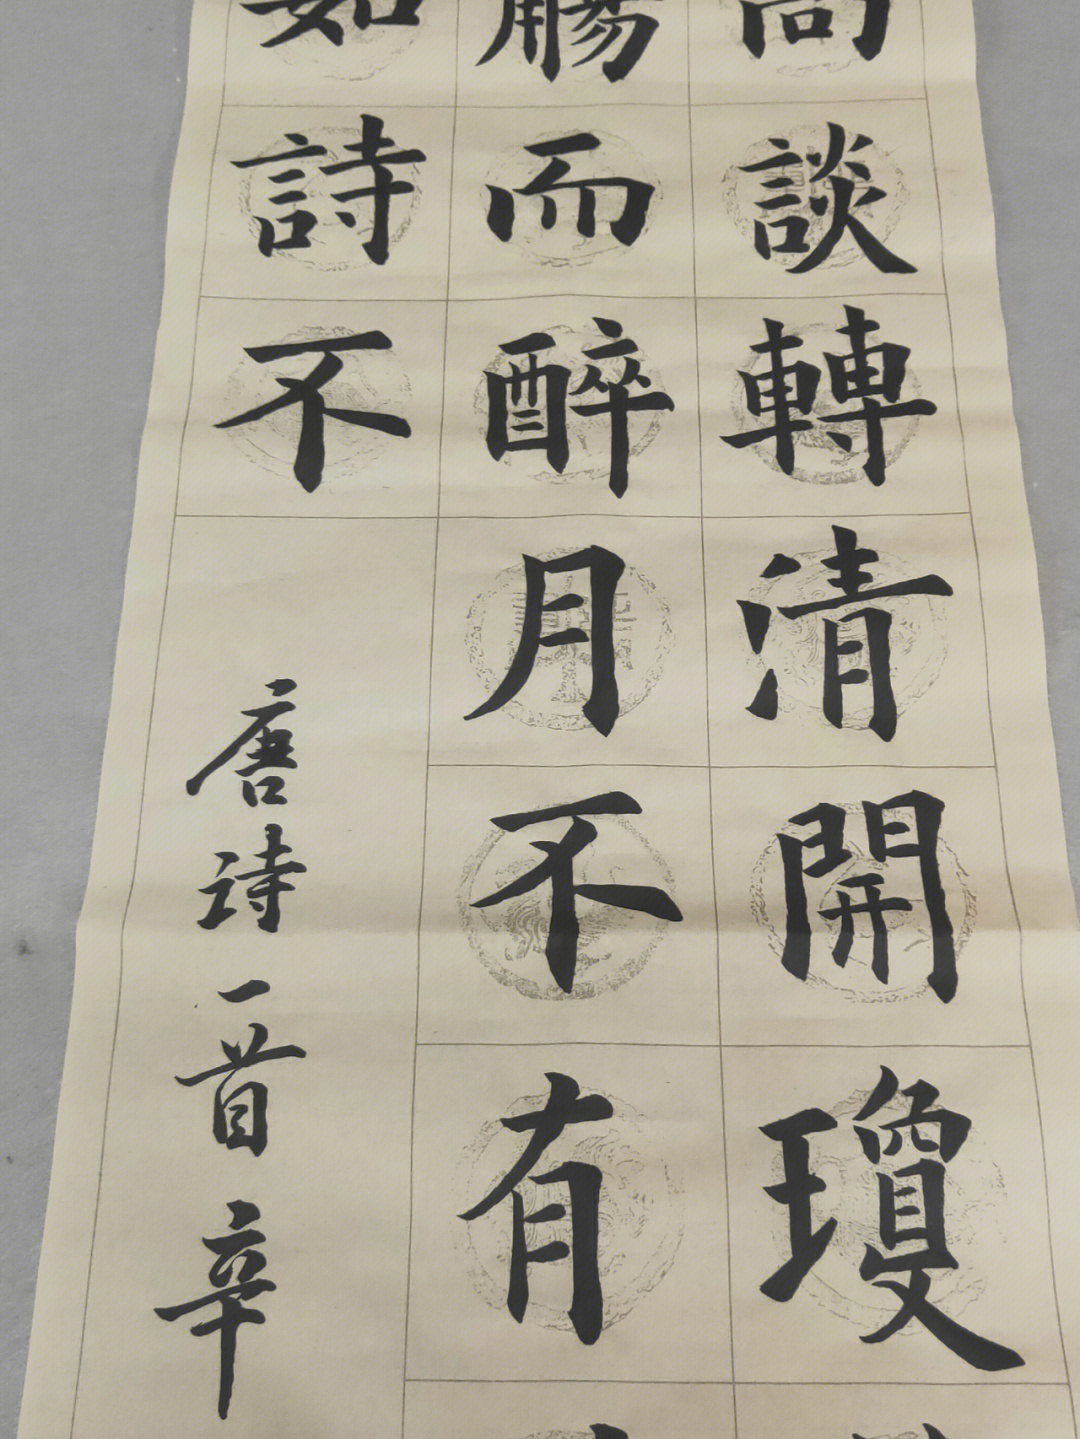 高談轉清開瓊
觴而醉月不有
如詩不
唐诗一首辛